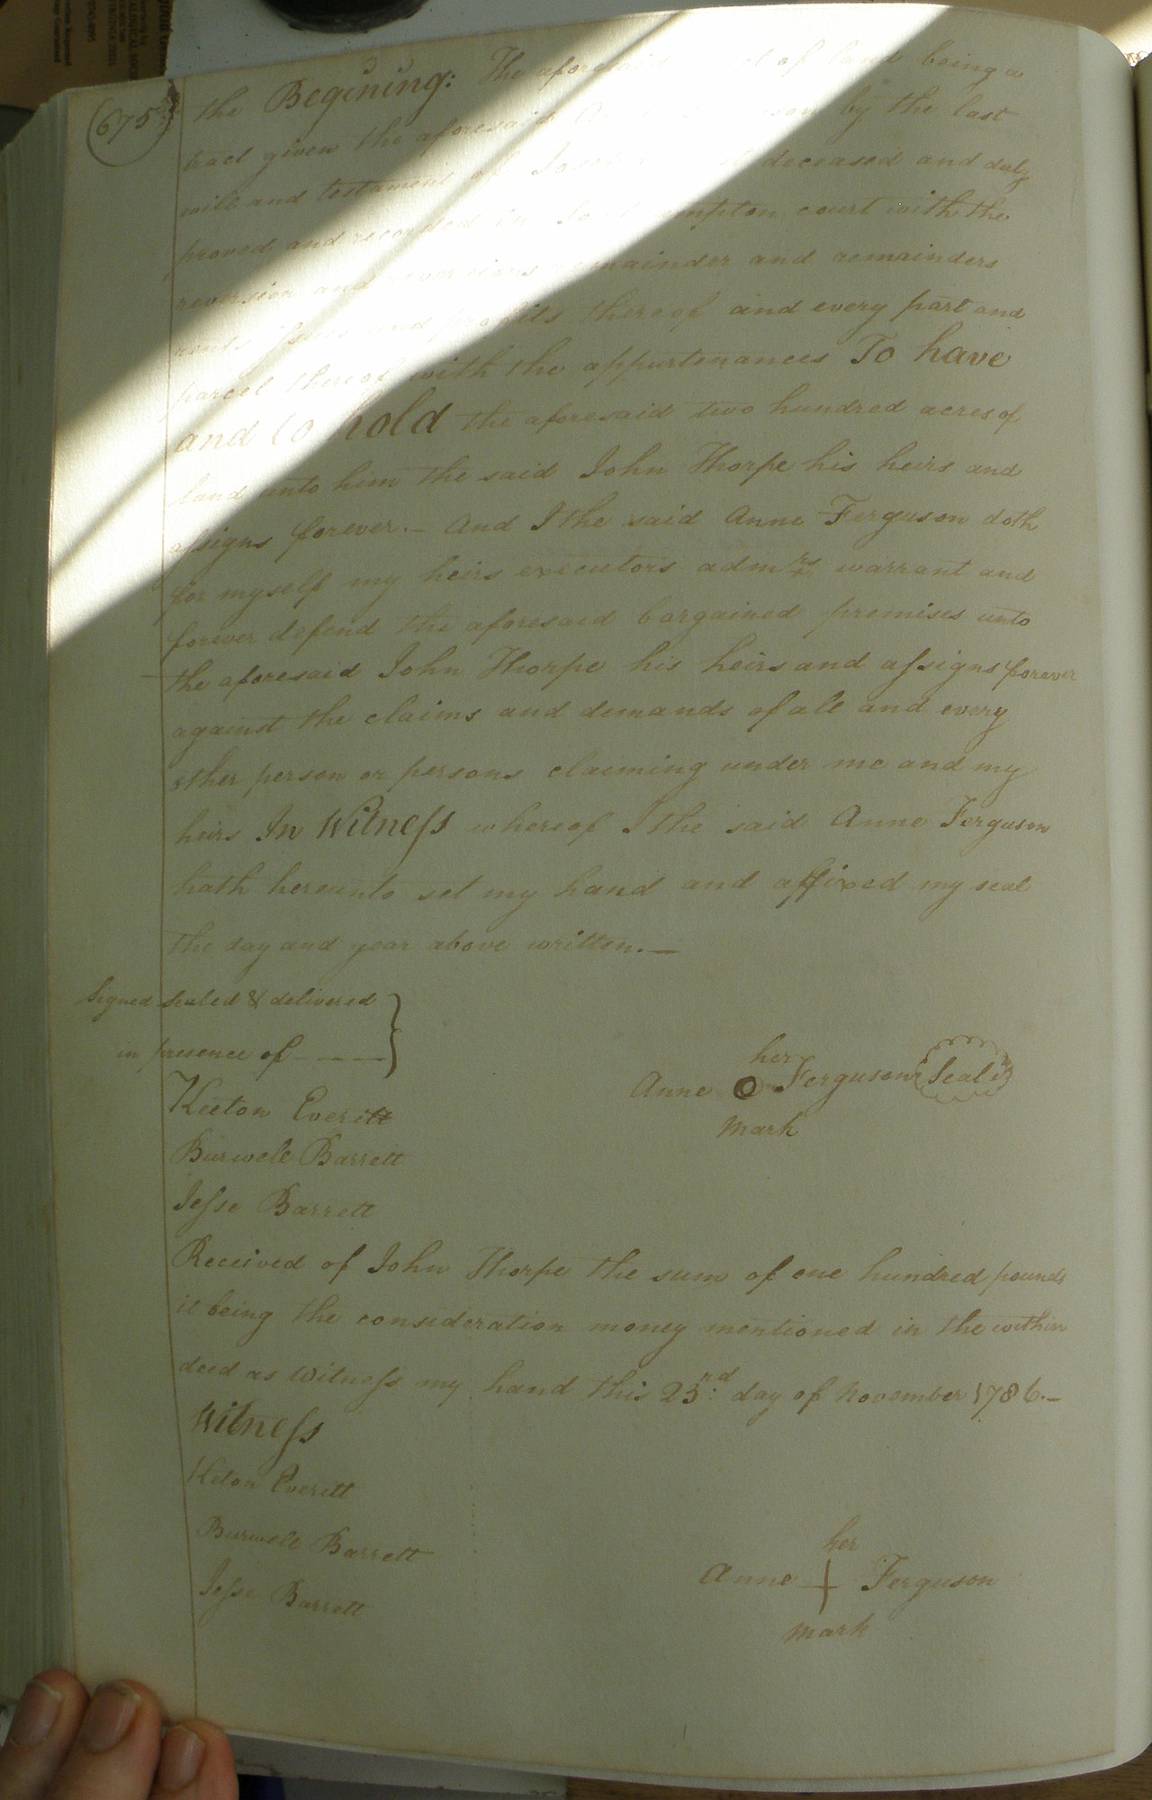 675
the Begining: The aforesaid of land being a
tract given the aforesaid by the last
will and testament of deceased and duly
proved and recorded in court with the
reversion and reversions remainder and remainders
rents Issues and profits thereof and every part and
parcel thereof with the appurtenances To have
and to hold the aforesaid two hundred acres of
land unto him the said John Thorpe his heirs and
assigns forever.— And I the said Anne Ferguson doth
for myself my heirs executors admrs. warrant and
forever defend the aforesaid bargained premises unto
the aforesaid John Thorpe his heirs and assigns forever
against the claims and demands of all and every
other person or persons claiming under me and my
heirs In Witness whereof I the said Anne Ferguson
hath hereunto set my hand and affixed my seal
the day and year above written.—
Signed sealed & delivered
in presence of
her
Anne O Ferguson Seal
mark
Keeton Everitt
Burwell Barrett
Jesse Barrett
Received of John Thorpe the sum of one hundred pounds
it being the consideration money mentioned in the within
deed as Witness my hand this 23rd. day of November 1786.—
Witness
Keton Everitt
Burwell Barrett
Jesse Barrett
her
Anne + Ferguson
mark